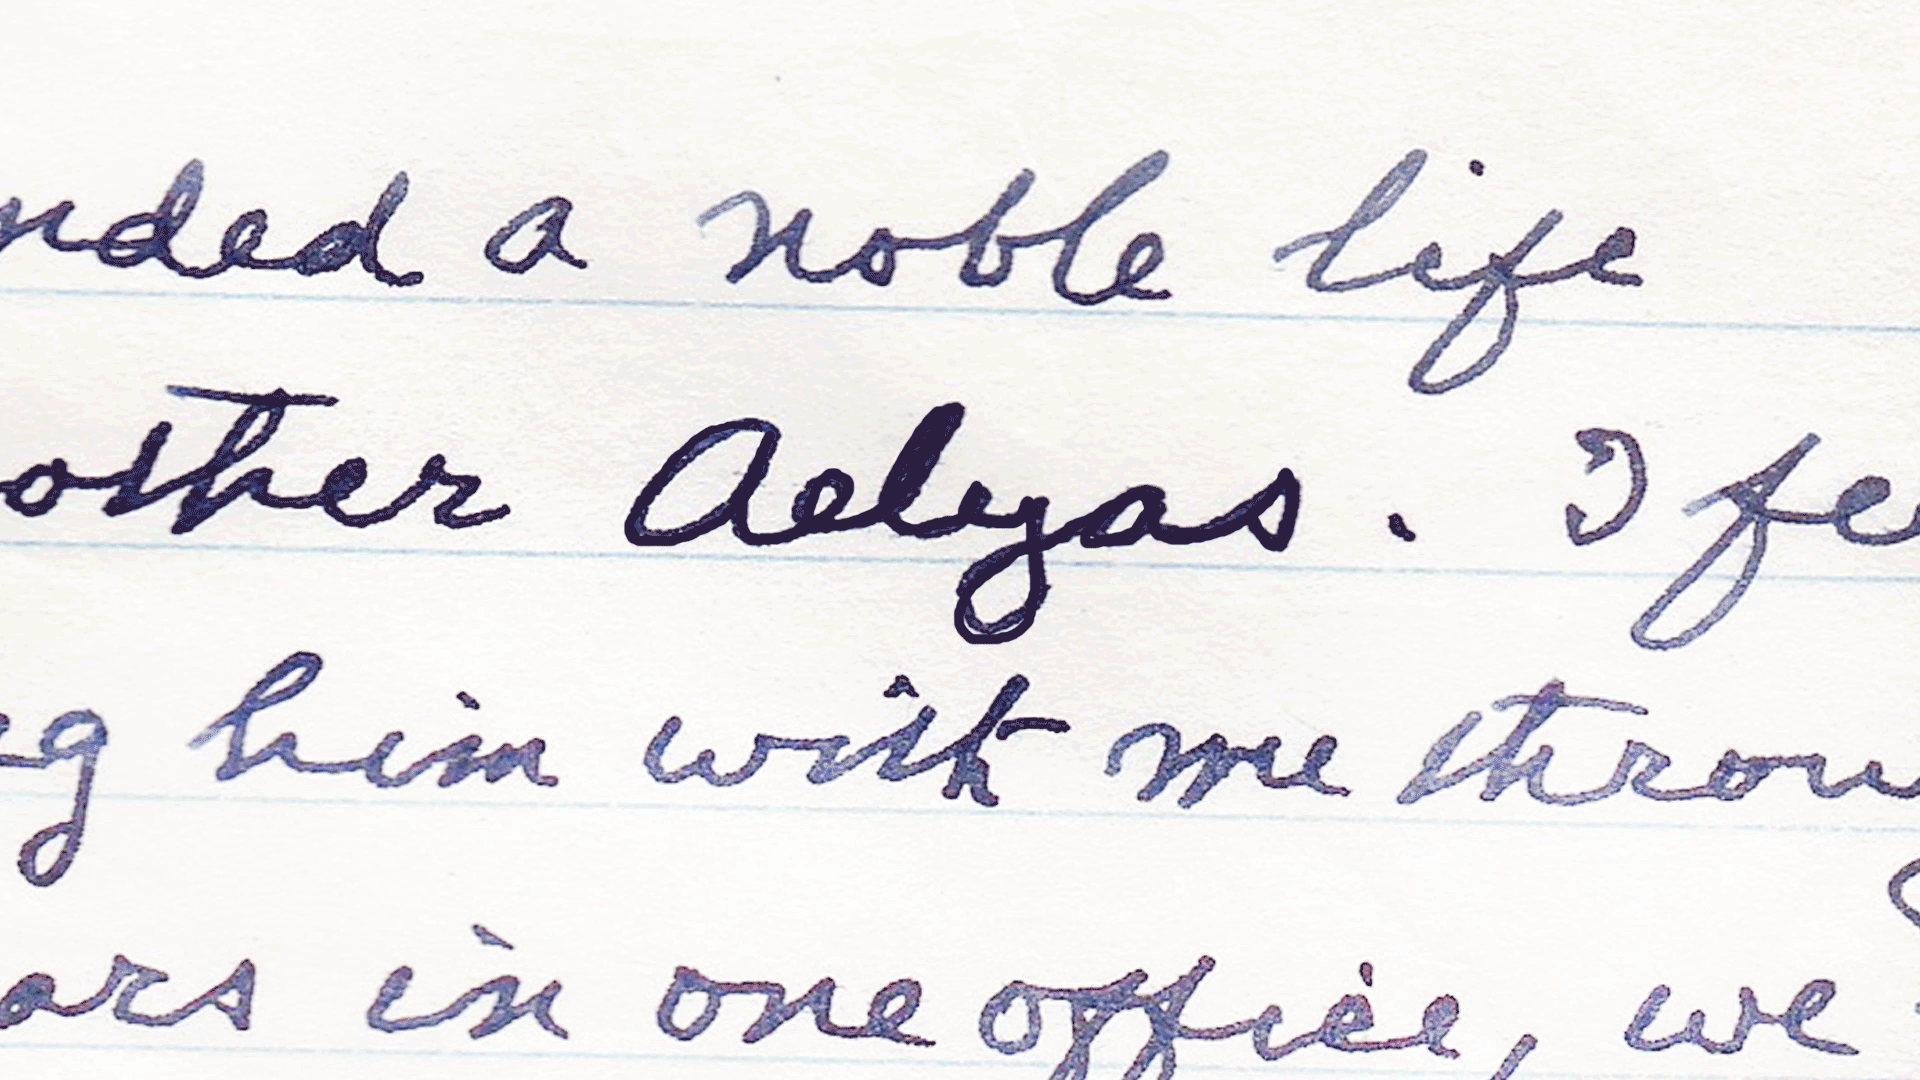 nded a noble life
other Aelyas. I fe
ng him with me throu
ars in one office, we